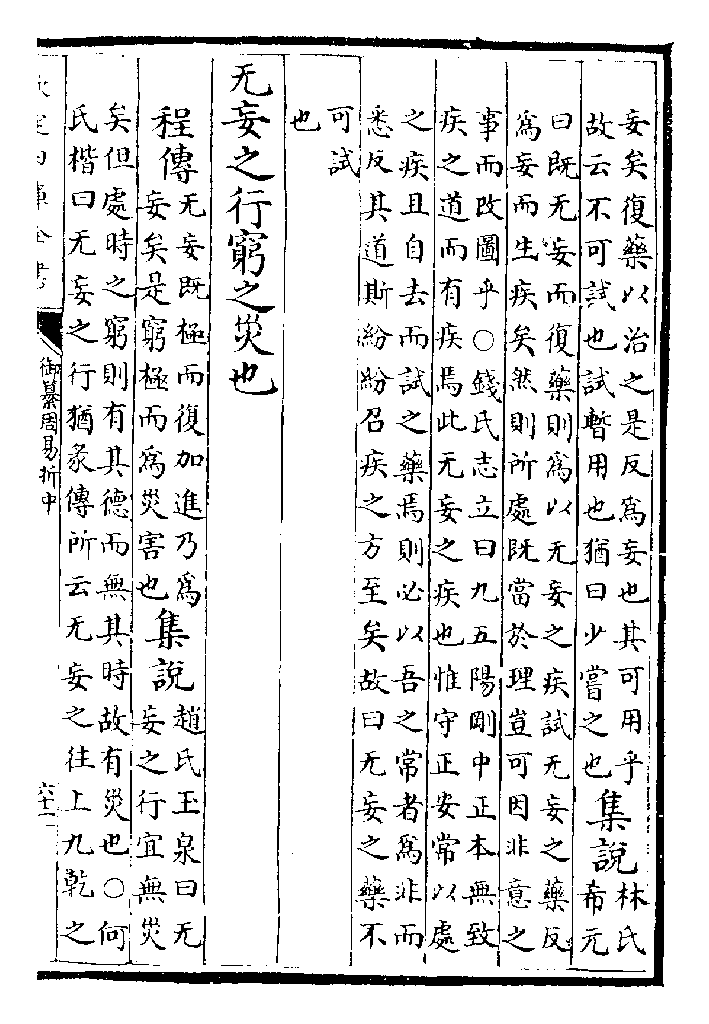 妄矣復藥以治之是反爲妄也其可用乎
故云不可試也試暫用也猶曰少嘗之也
集說
林氏
希元
曰既无妄而復藥則爲以无妄之疾試无妄之藥反
爲妄而生疾矣然則所處既當於理豈可因非意之
事而改圖乎○錢氏志立曰九五陽剛中正本無致
疾之道而有疾焉此无妄之疾也惟守正安常以處
之疾且自去而試之藥焉則必以吾之常者爲非而
悉反其道斯紛紛召疾之方至矣故曰无妄之藥不
可試
也
无妄之行窮之災也
程傳
无妄既極而復加進乃爲
妄矣是窮極而爲災害也
集說
趙氏玉泉曰无
妄之行宜無災
矣但處時之窮則有其德而無其時故有災也○何
氏楷曰无妄之行猶彖傳所云无妄之往上九乾之
欽定四庫全書
御纂周易折中